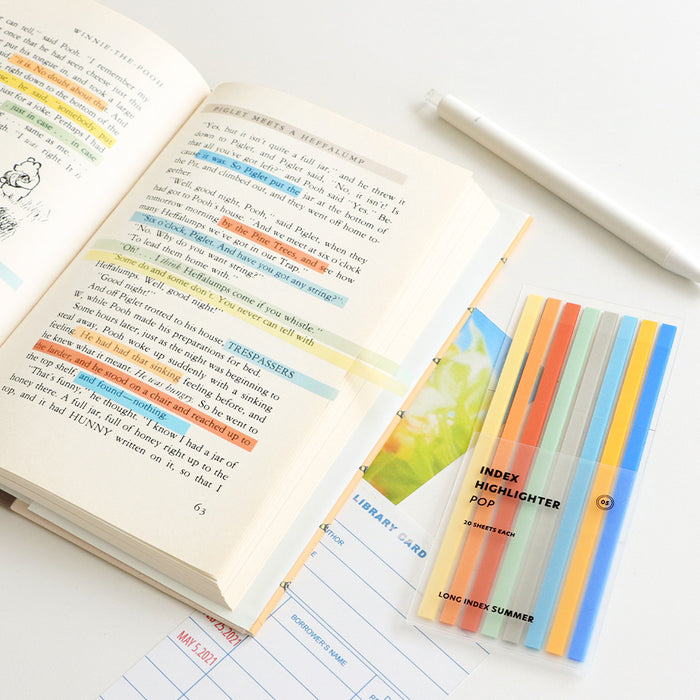 WINNIE-THE-POOH
can tell," said Pooh. "I remember my
once that he had seen cheese just this
put his tongue in, and took a large
right down to the bottom of the
"it is. No doubt about that. And
he said, "somebody put
just for a joke. Perhaps I had
just in case . . . in case
same as me
PIGLET MEETS A HEFFALUMP
"Yes, but it isn't quite a full jar," and he threw it
down to Piglet, and Piglet said, "No, it isn't! Is
that all you've got left?" and Pooh said "Yes." Be-
cause it was. So Piglet put the jar at the bottom of
the Pit, and climbed out, and they went off home to-
gether.
"Well, good night, Pooh," said Piglet, when they
had got to Pooh's house. "And we meet at six o'clock
tomorrow morning by the Pine Trees, and see how
many Heffalumps we've got in our Trap."
"Six o'clock, Piglet. And have you got any string?"
"No. Why do you want string?"
"To lead them home with."
"Oh! . . I think Heffalumps come if you whistle."
"Some do and some don't. You never can tell with
Heffalumps. Well, good night!"
"Good night!"
And off Piglet trotted to his house, TRESPASSERS
W, while Pooh made his preparations for bed.
Some hours later, just as the night was beginning to
steal away, Pooh woke up suddenly with a sinking
feeling. He had had that sinking feeling before, and
he knew what it meant. He was hungry. So he went to
the larder, and he stood on a chair and reached up to
the top shelf, and found—nothing.
"That's funny," he thought. "I know I had a jar of
honey there. A full jar, full of honey right up to the
top, and it had HUNNY written on it, so that I
63
LIBRARY CARD
AUTHOR
BORROWER'S NAME
25.2021
MAY 5.2021
INDEX
HIGHLIGHTER
POP
05
20 SHEETS EACH
LONG INDEX SUMMER